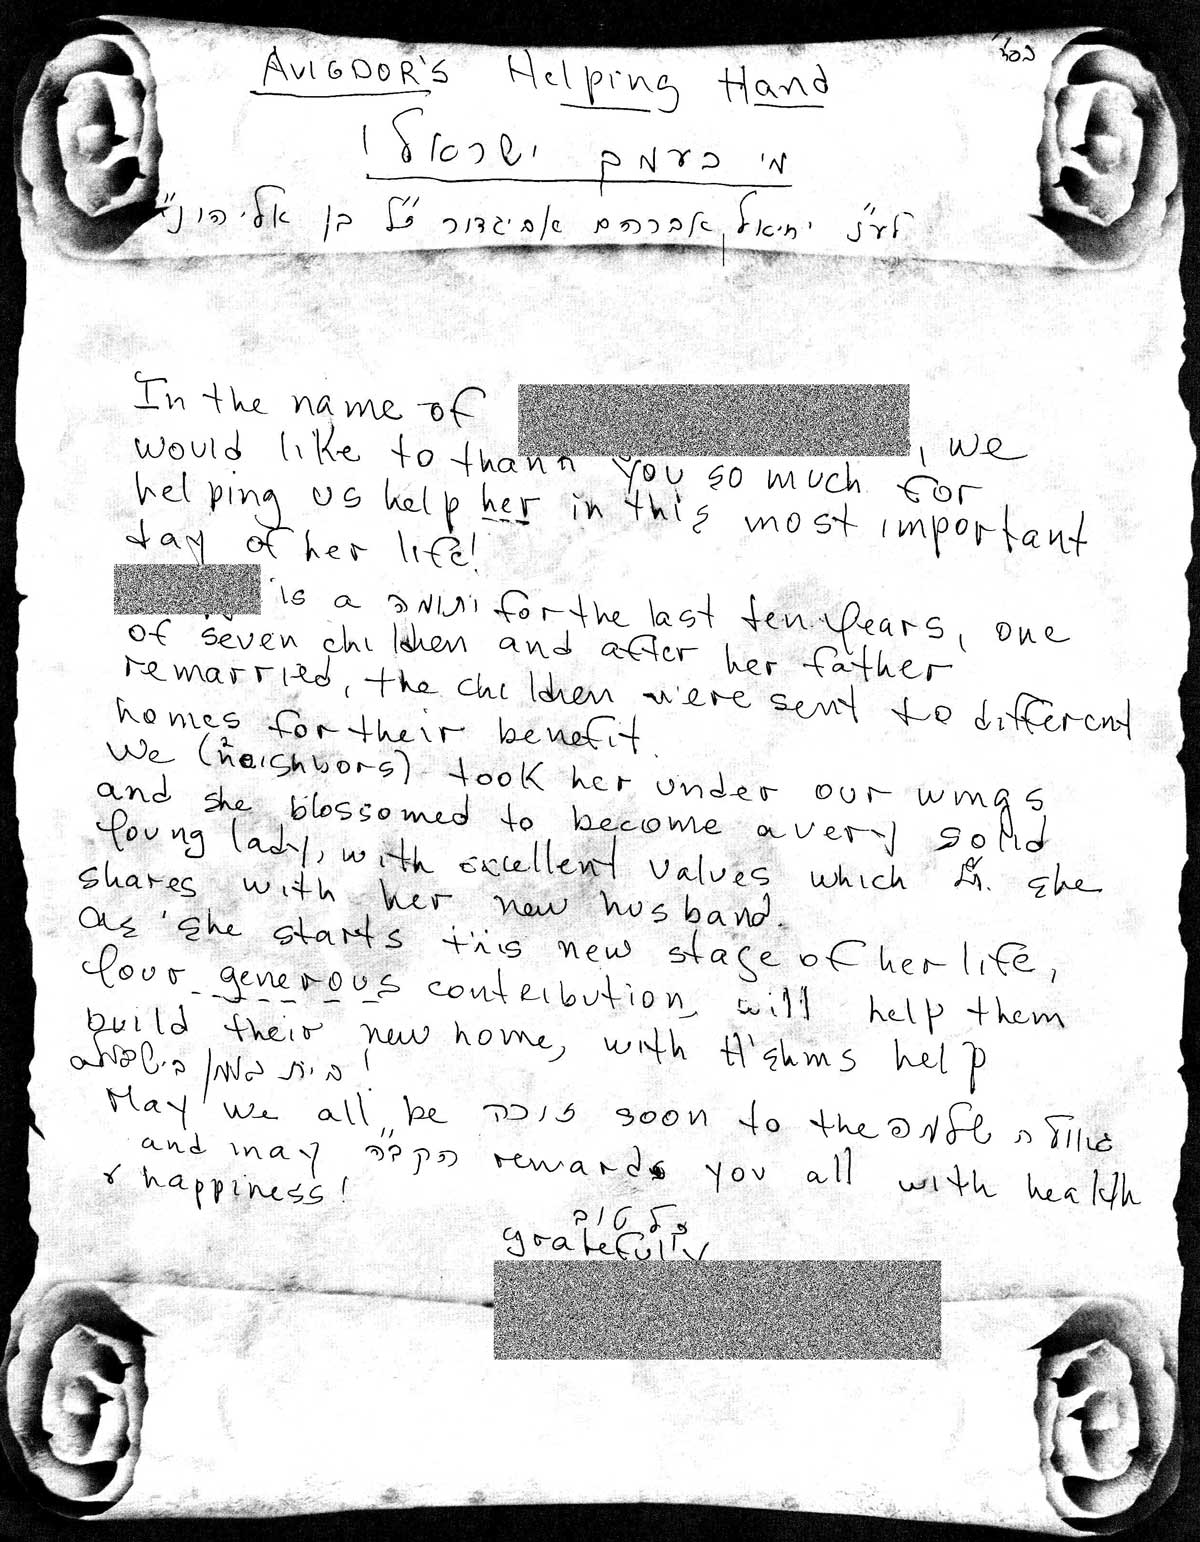 בסד
AVIGDOR'S Helping Hand
מי כעמך ישראל!
לע"נ יחיאל אברהם אביגדור ז"ל בן אליהו נ"י
In the name of
would like to thank you so much for , we
helping us help her in this most important
day of her life!
is a יתומה for the last ten years, one
of seven children and after her father
remarried, the children were sent to different
homes for their benefit.
We (neighbors) took her under our wings
and she blossomed to become a very solid
young lady, with excellent values which she
shares with her new husband.
As she starts this new stage of her life,
your generous contribution will help them
build their new home, with H'shms help
בית נאמן בישראל!
May we all be זוכה soon to the גאולה שלמה
and may הקב"ה rewards you all with health
& happiness!
כל טוב
gratefully